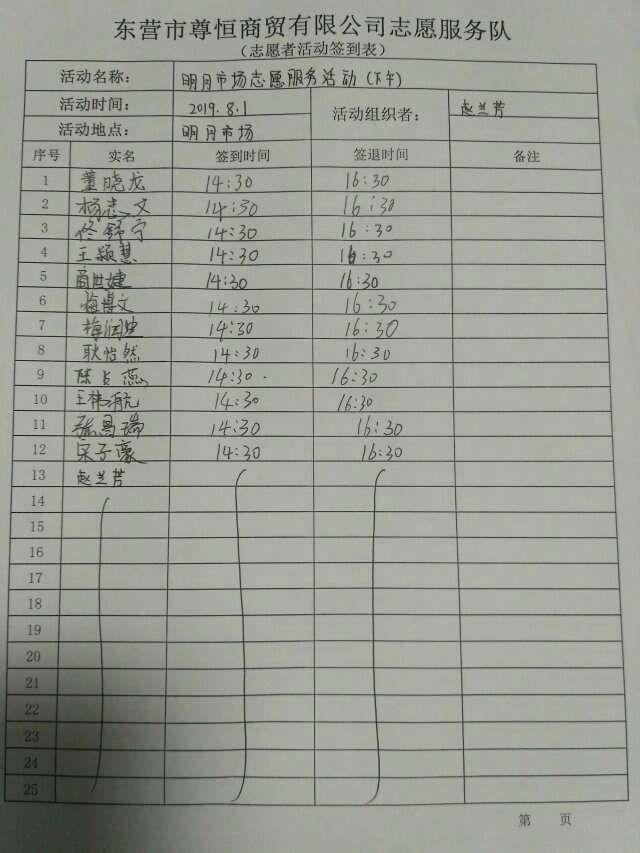 东营市尊恒商贸有限公司志愿服务队
（志愿者活动签到表）
活动名称： 明月市场志愿服务活动（下午）
活动时间： 2019.8.1 活动组织者： 赵兰芳
活动地点： 明月市场
序号 实名 签到时间 签退时间 备注
1 董晓龙 14:30 16:30
2 杨志文 14:30 16:30
3 佟舒宁 14:30 16:30
4 王颖慧 14:30 16:30
5 商世婕 14:30 16:30
6 梅博文 14:30 16:30
7 梅润 14:30 16:30
8 耿怡然 14:30 16:30
9 陈 蕊 14:30 16:30
10 王 航 14:30 16:30
11 张昌瑞 14:30 16:30
12 宋子豪 14:30 16:30
13 赵兰芳
14
15
16
17
18
19
20
21
22
23
24
25
第 页